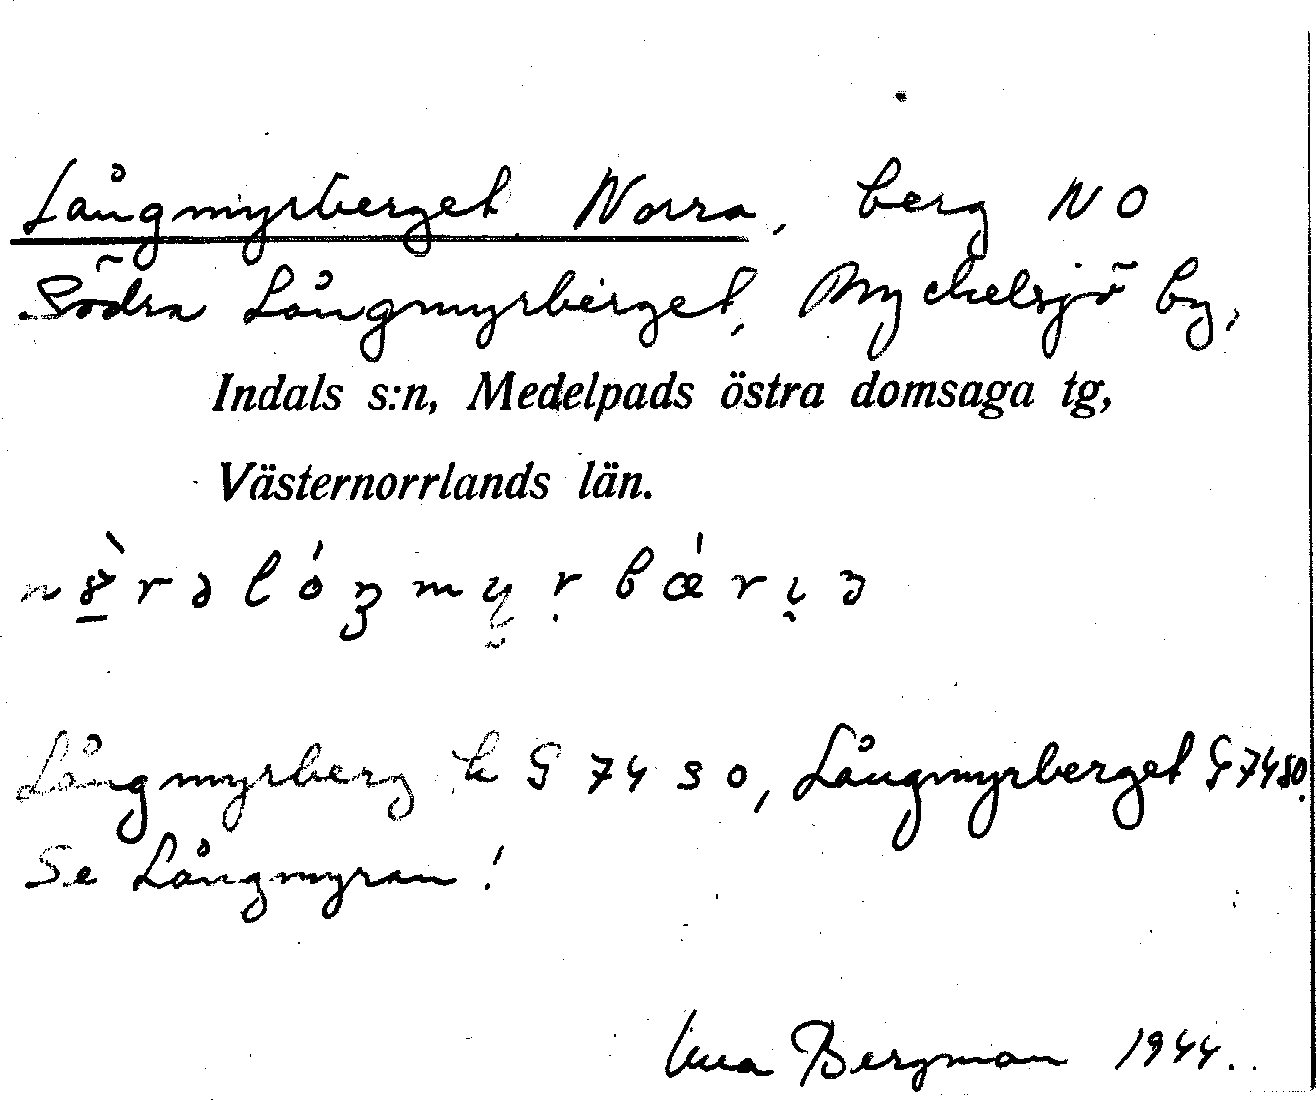 Långmyrberget Norra, berg NO
Södra Långmyrberget, Myckelsjö by,
Indals s:n, Medelpads östra domsaga tg,
Västernorrlands län.
Långmyrberg k G 7480, Långmyrberget G 7480.
Se Långmyran!
Bergman 1944.